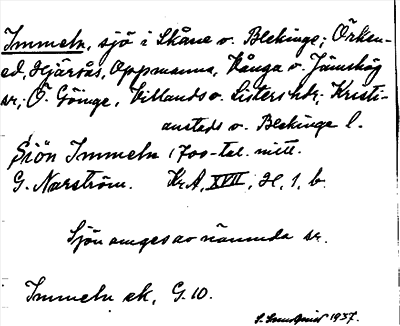 Immeln, sjö i Skåne o. Blekinge; Örken-
ed, Hjärsås, Oppmanna, Vånga o. Jämshög
sr; Ö. Göinge, Villands o. Listers hdr; Kristi-
anstads o. Blekinge l.
Siön Immeln 1700-tal. mitt.
G. Narström. Kr.A, XVII, H, 1, b.
Sjön omges av nämnda sr.
Immeln ek, G. 10.
1937.